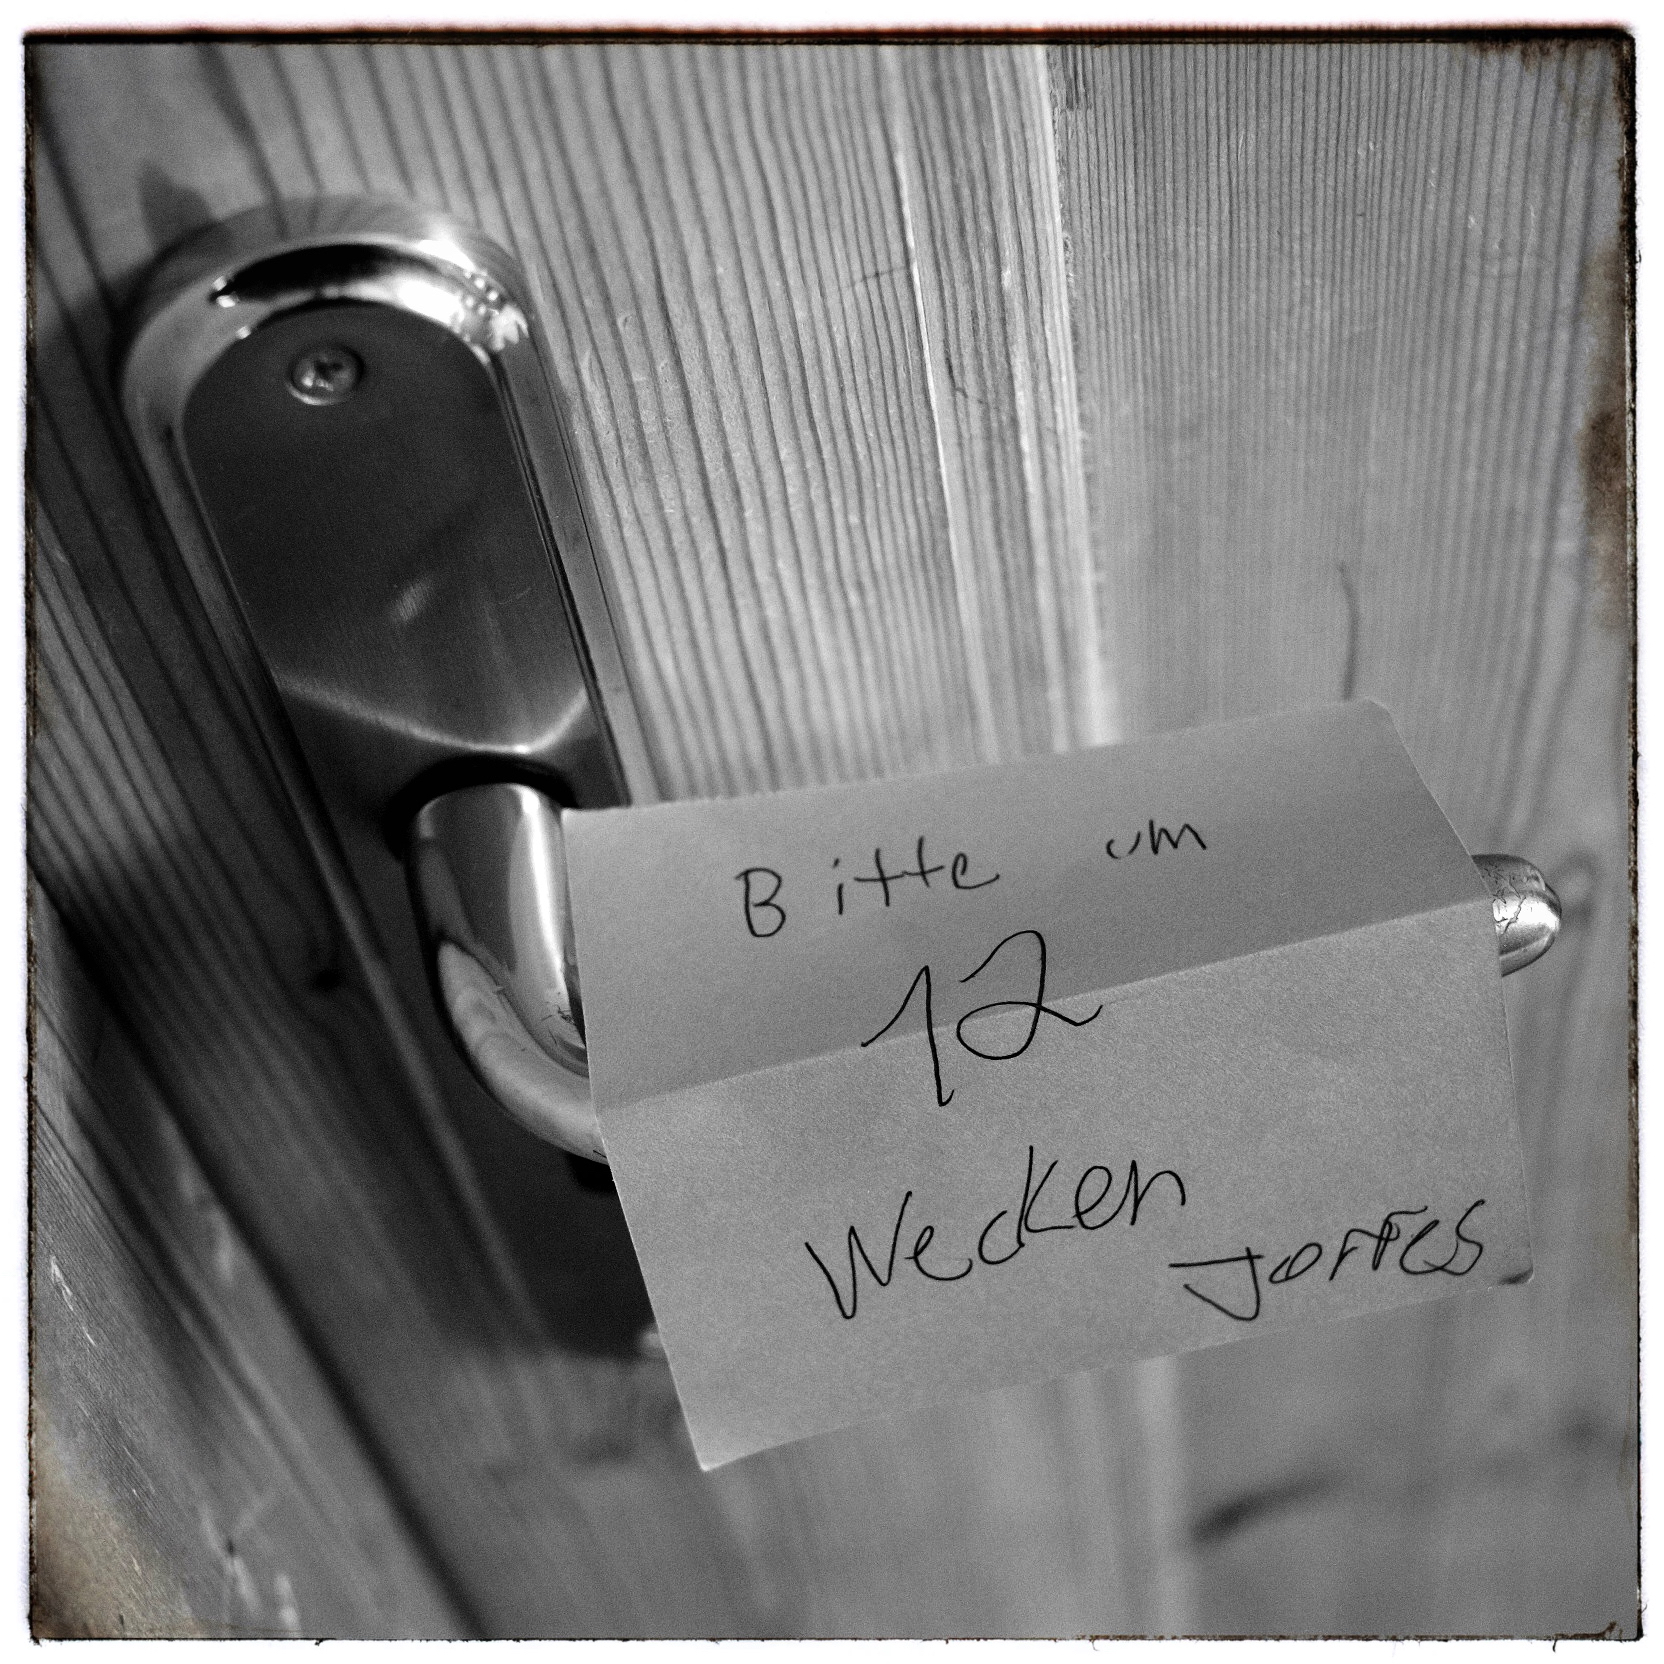 Bitte um
12
Wecken